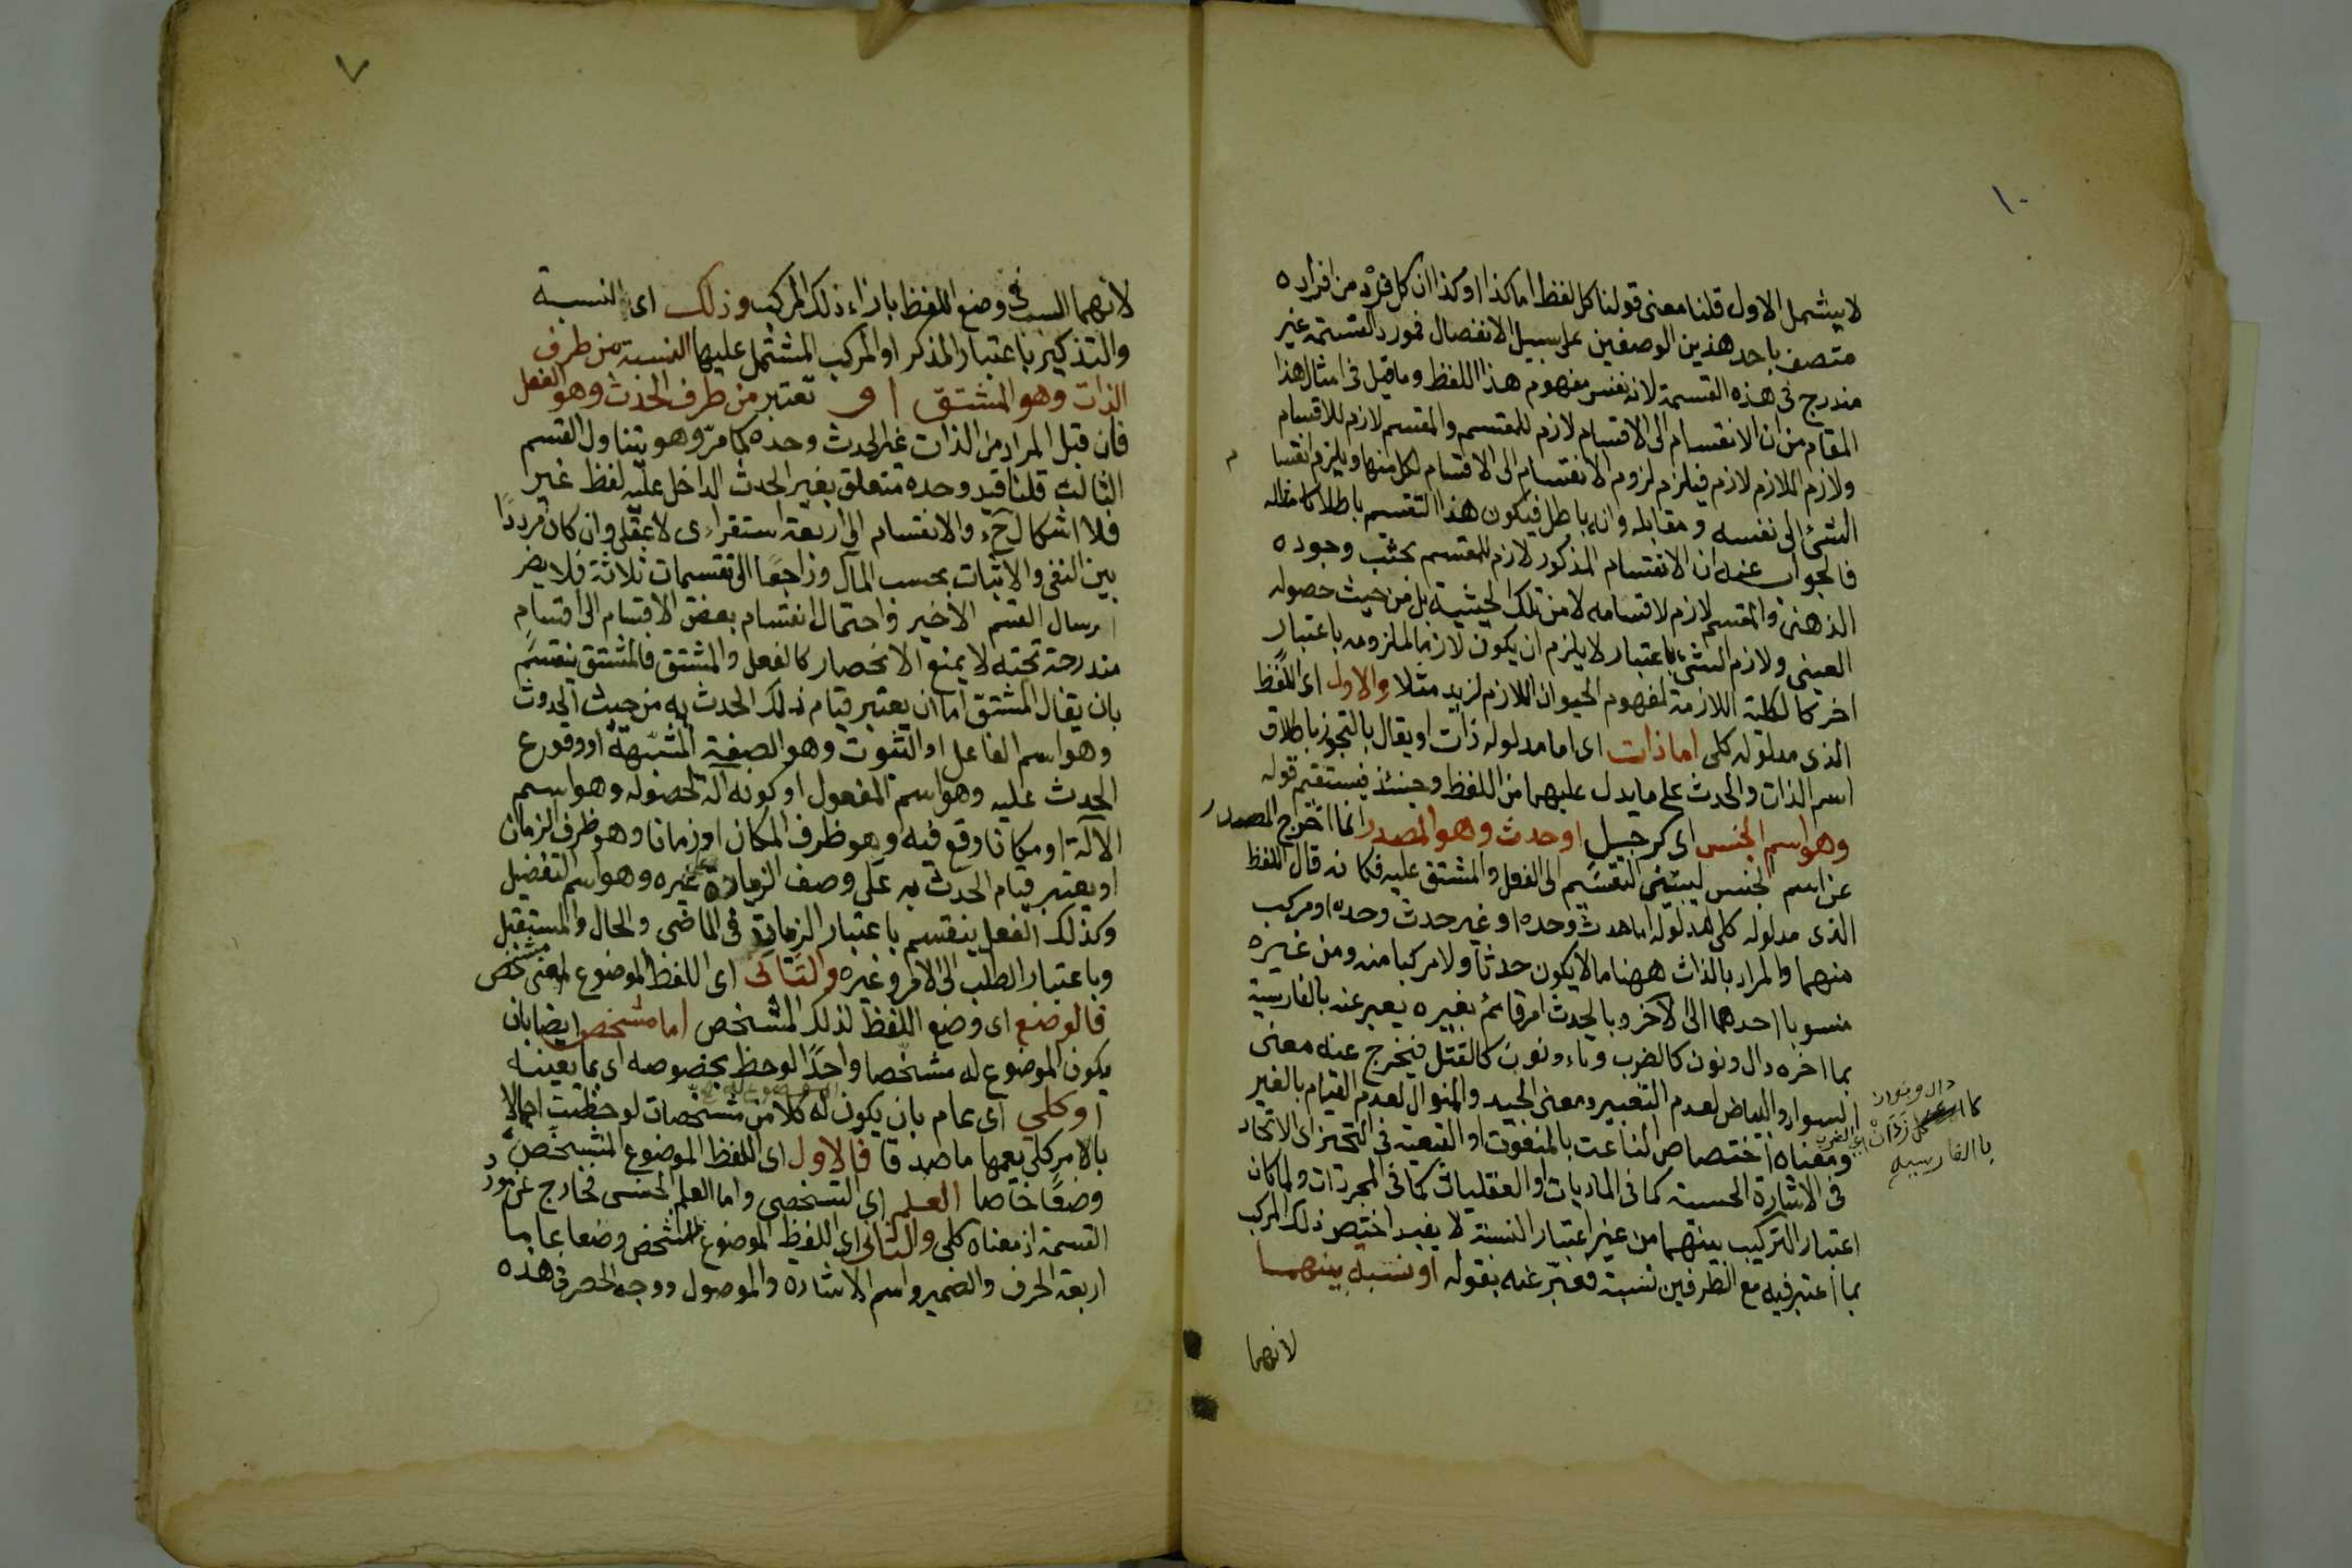 ١٠
لا يشمل الاول قلنا معنى قولنا كل لفظ اما كذا او كذا ان كل فرد من افراده
متصف باحد هذين الوصفين على سبيل الانفصال فمورد القسمة غير
مندرج فى هذه القسمة لانه نفس مفهوم هذا اللفظ وما قيل فى امثال هذا
المقام من ان الانقسام الى الاقسام لازم للمقسم والمقسم لازم للاقسام
ولازم اللازم لازم فيلزم لزوم الانقسام الى الاقسام لكل منها ويلزم انقسا م
الشئ الى نفسه ومقابله وانه باطل فيكون هذا التقسيم باطلا كامثاله
فالجواب عنه ان الانقسام المذكور لازم للمقسم بحسب وجوده
الذهنى والمقسم لازم لاقسامه لا من تلك الحيثية بل من حيث حصوله
العينى ولازم الشئ باعتبار لا يلزم ان يكون لازما لملزومه باعتبار
اخر كالكلية اللازمة لمفهوم الحيوان اللازم لزيد مثلا والاول اى اللفظ
الذى مدلوله كلى اما ذات اى اما مدلوله ذات او يقال بالتجوز باطلاق
اسم الذات والحدث على ما يدل عليهما من اللفظ وحينئذ فيستقيم قوله
وهو اسم الجنس اى كرجل او حدث وهو المصدر انما اخرج المصدر
عن اسم الجنس ليبتنى التقسيم الى الفعل والمشتق عليه فكانه قال اللفظ
الذى مدلوله كلى مدلوله اما حدث وحده او غير حدث وحده او مركب
منهما والمراد بالذات ههنا ما لا يكون حدثا ولا مركبا منه ومن غيره
منسوبا احدهما الى الاخر وبالحدث امر قائم بغيره يعبر عنه بالفارسية
بما اخره دال ونون كالضرب وتاء ونون كالقتل فيخرج عنه معنى
السواد والبياض لعدم التعبير ومعنى الجيد والمنوال لعدم القيام بالغير
ومعناه اختصاص الناعت بالمنعوت او التبعية فى التحيز اى الاتحاد
فى الاشارة الحسية كما فى الماديات او العقليات كما فى المجردات ولما كان
اعتبار التركيب بينهما من غير اعتبار النسبة لا يفيد اختص ذلك المركب
بما اعتبر فيه مع الطرفين نسبة فعبر عنه بقوله او نسبة بينهما
لانهما
دال ونون
بالفارسيه
٧
لانهما فى وضع اللفظ بازاء ذلك المركب وذلك اى النسبة
والتذكير باعتبار المذكر او المركب المشتمل عليها النسبة من طرف
الذات وهو المشتق او تعتبر من طرف الحدث وهو الفعل
فان قيل المراد من الذات غير الحدث وحده كما مرّ وهو يتناول القسم
الثالث قلنا قيد وحده متعلق بغير الحدث الداخل عليه لفظ غير
فلا اشكال حٓ والانقسام الى اربعة استقراءى لا عقلى وان كان مرددًا
بين النفى والاثبات بحسب المآل وراجعًا الى تقسيمات ثلاثة فلا يضر
ارسال القسم الاخير واحتمال انقسام بعض الاقسام الى اقسام
مندرجة تحته لا يمنع الانحصار كالفعل والمشتق فالمشتق ينقسم
بان يقال المشتق اما ان يعتبر قيام ذلك الحدث به من حيث الحدوث
وهو اسم الفاعل او الثبوت وهو الصفة المشبهة او وقوع
الحدث عليه وهو اسم المفعول او كونه آلة لحصوله وهو اسم
الآلة او مكانا وقع فيه وهو ظرف المكان او زمانا وهو ظرف الزمان
او يعتبر قيام الحدث به على وصف الزيادة على غيره وهو اسم التفضيل
وكذلك الفعل ينقسم باعتبار الزمان فى الماضى والحال والمستقبل
وباعتبار الطلب الى الامر وغيره والثانى اى اللفظ الموضوع لمعنى مشخص
فالوضع اى وضع اللفظ لذلك المشخص اما مشخص ايضا بان
يكون الموضوع له مشخصا واحدًا لوحظ بخصوصه اى بما يعينه
او كلى اى عام بان يكون له كلا من مشخصات لوحظت اجمالا
بالامر كلى يعمها ما صدقا فالاول اى اللفظ الموضوع المشخص و
وضعًا خاصا العلم اى الشخصى واما العلم الجنسى فخارج عن مورد
القسمة اذ معناه كلى والثانى اى اللفظ الموضوع للمشخص وضعا عاما
اربعة الحرف والضمير واسم الاشارة والموصول ووجه الحصر فى هذه